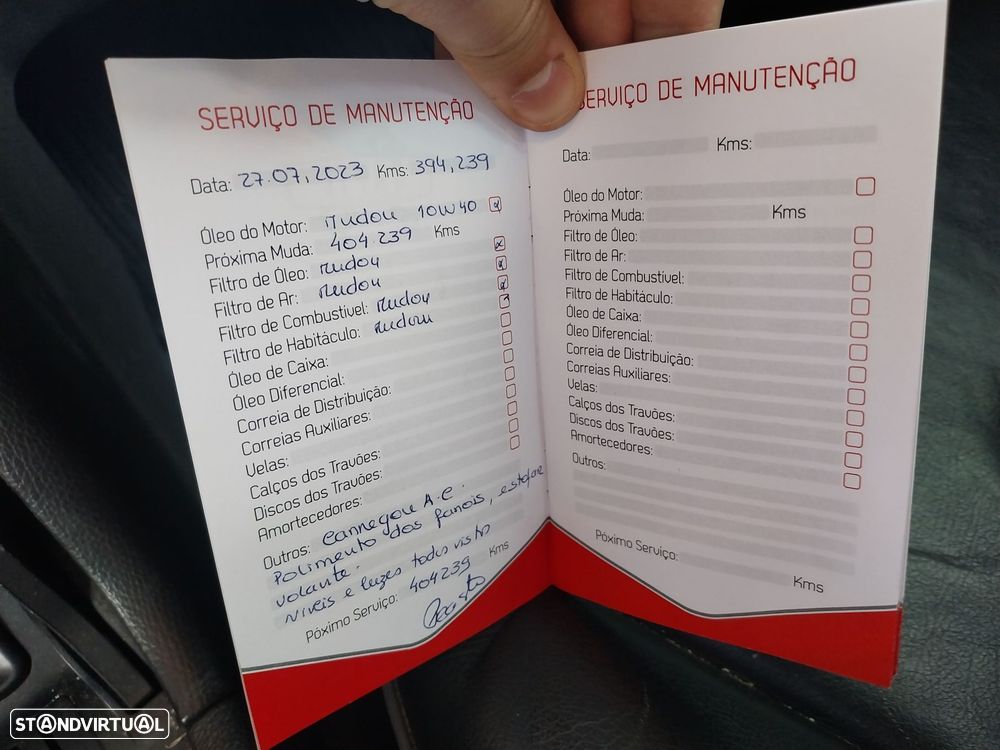 SERVIÇO DE MANUTENÇÃO
Data: 27.07.2023 Kms: 394,239
Óleo do Motor: Mudou 10W40
Próxima Muda: 404.239 Kms
Filtro de Óleo: Mudou
Filtro de Ar: Mudou
Filtro de Combustível: Mudou
Filtro de Habitáculo: Mudou
Óleo de Caixa:
Óleo Diferencial:
Correia de Distribuição:
Correias Auxiliares:
Velas:
Calços dos Travões:
Discos dos Travões:
Amortecedores:
Outros: Carregou A.C.
Polimento dos farois, estofar
volante.
Niveis e luzes todos vistos
Póximo Serviço: 404239 Kms
SERVIÇO DE MANUTENÇÃO
Data: Kms:
Óleo do Motor:
Próxima Muda: Kms
Filtro de Óleo:
Filtro de Ar:
Filtro de Combustível:
Filtro de Habitáculo:
Óleo de Caixa:
Óleo Diferencial:
Correia de Distribuição:
Correias Auxiliares:
Velas:
Calços dos Travões:
Discos dos Travões:
Amortecedores:
Outros:
Póximo Serviço:
Kms
STANDVIRTUAL